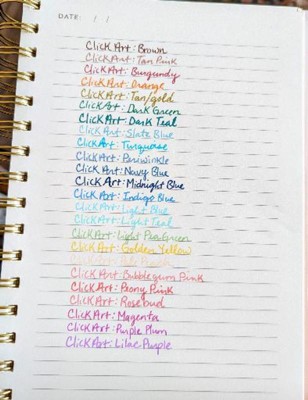 DATE: / /
Click Art: Brown
Click Art: Tan Pink
Click Art: Burgundy
Click Art: Orange
Click Art: Tan/gold
Click Art: Dark Green
Click Art: Dark Teal
Click Art: Slate Blue
Click Art: Turquoise
Click Art: Periwinkle
Click Art: Navy Blue
Click Art: Midnight Blue
Click Art: Indigo Blue
Click Art: Light Blue
Click Art: Light Teal
Click Art: Light Pea Green
Click Art: Golden Yellow
Click Art:
Click Art: Bubblegum Pink
Click Art: Peony Pink
Click Art: Rosebud
Click Art: Magenta
Click Art: Purple Plum
Click Art: Lilac Purple